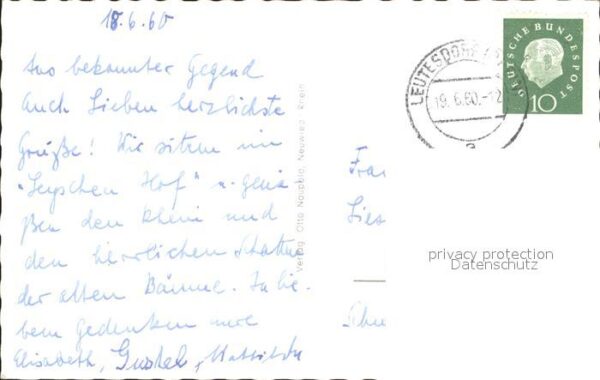 18.6.60
Aus bekannter Gegend
Euch Lieben herzlichste
Grüße! Wir sitzen im
"Leyschen Hof" u. genie
ßen den Rhein und
den herrlichen Schatten
der alten Bäume. In lie-
bem Gedenken
Elisabeth, Gustel, Mathilde
Verlag Otto Neupold, Neuwied / Rhein
LEUTESDORF
19.6.60.-12
a
DEUTSCHE BUNDESPOST
10
Frau
Lies
privacy protection
Datenschutz